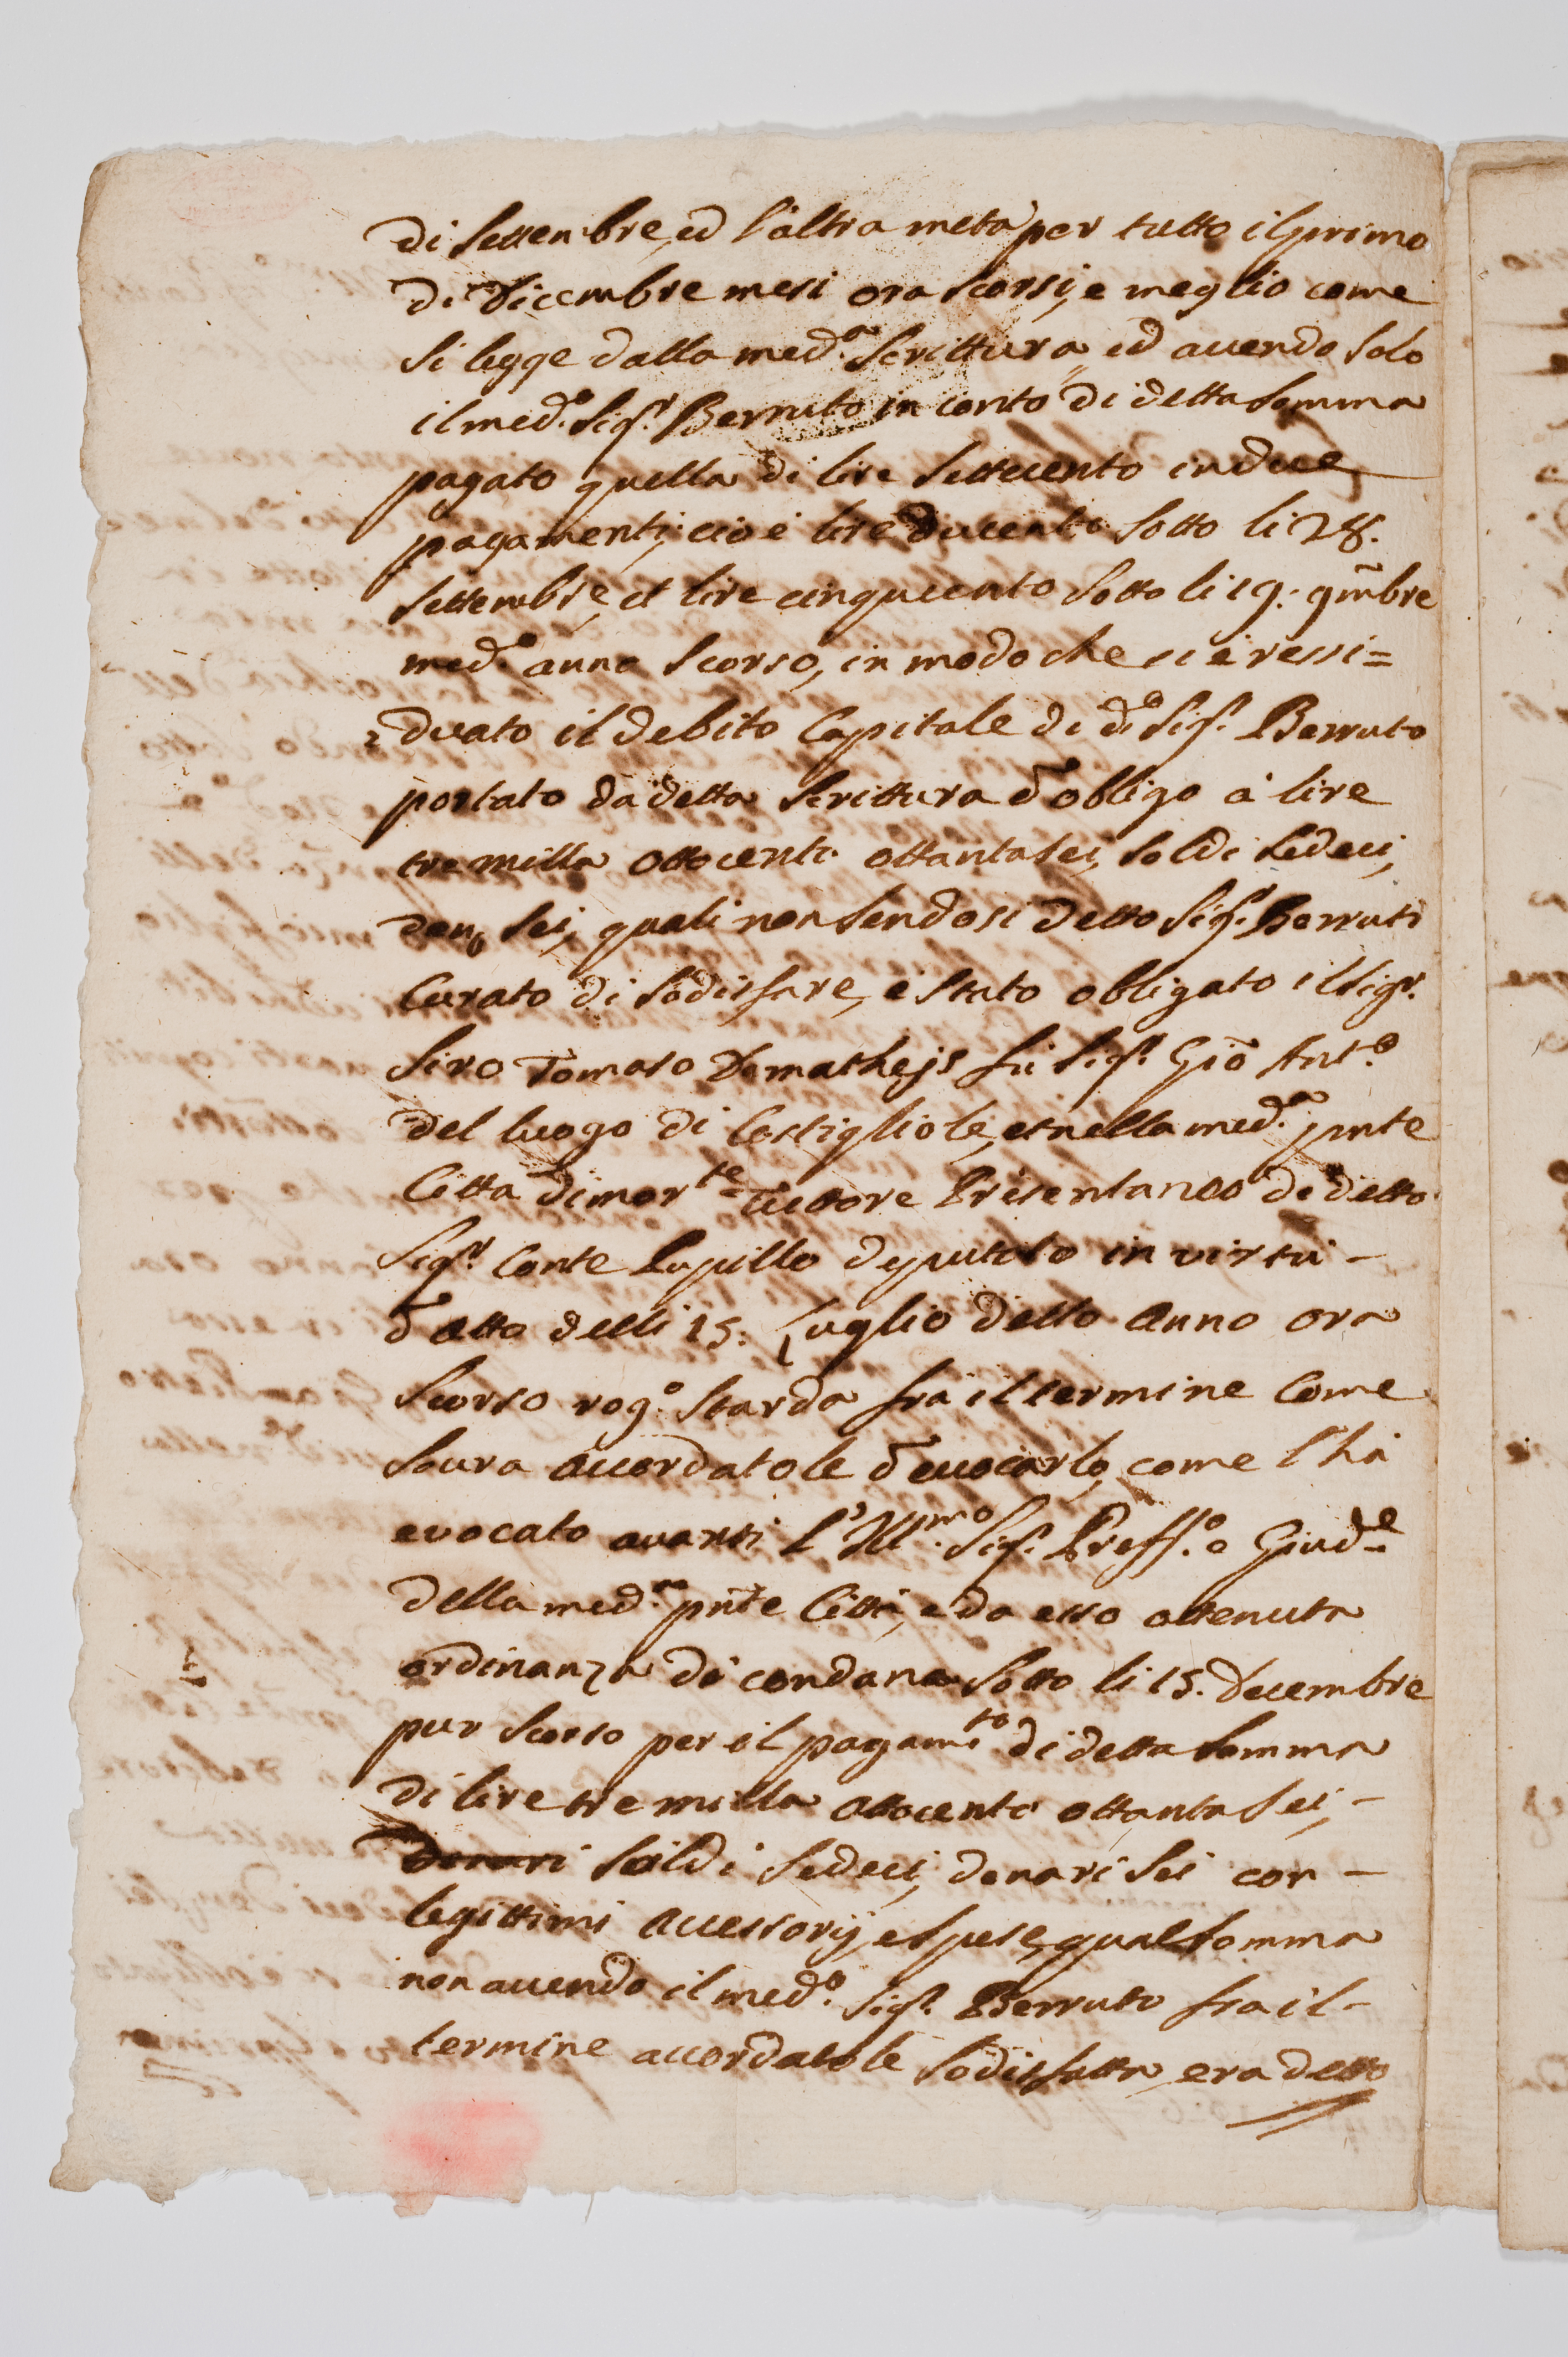 di Settembre, ed l'altra metà per tutto il primo
di Dicembre mesi ora scorsi, e meglio come
si legge dalla med.a Scrittura, ed avendo solo
il med.o Sig.r Berruto in conto di detta somma
pagato quella di lire settecento in due
pagamenti, cioè lire ducento sotto li 28.
Settembre, et lire cinquecento sotto li 19: 9mbre
med.o anno scorso, in modo che si è ressi=
duato il debito Capitale di d.o Sig.r Berruto
portato da detta Scrittura d'obligo à lire
tremilla ottocento ottantasei, soldi sedeci,
den. sei, quali non sendosi detto Sig.r Berruti
Curato di sodisfare, è stato obligato il Sig.r
Siro Tomaso Demathejs fù Sig.r Giõ Ant.o
del luogo di Costigliole, et nella med.a pnte
Città dimor.te Tuttore Presentaneo di detto
Sig.r Conte Pupillo deputato in virtù –
d'atto delli 15: Luglio detto anno ora
scorso rog.o Starda frà il termine come
soura accordatole d'evocarlo, come l'hà
evocato avanti l'Ill.mo Sig.r Preff.o e Giud.e
della med.ma pnte Città, e da esso ottenuta
ordinanza di condana sotto li 15. Decembre
pur scorso per il pagam.to di detta somma
di lire tremilla ottocento ottanta sei, –
Denari soldi sedeci, denari sei con –
legittimi accessorij, e spese, qual somma
non avendo il med.o Sig.r Berruto fra il –
termine accordatole sodisfatta, era detto